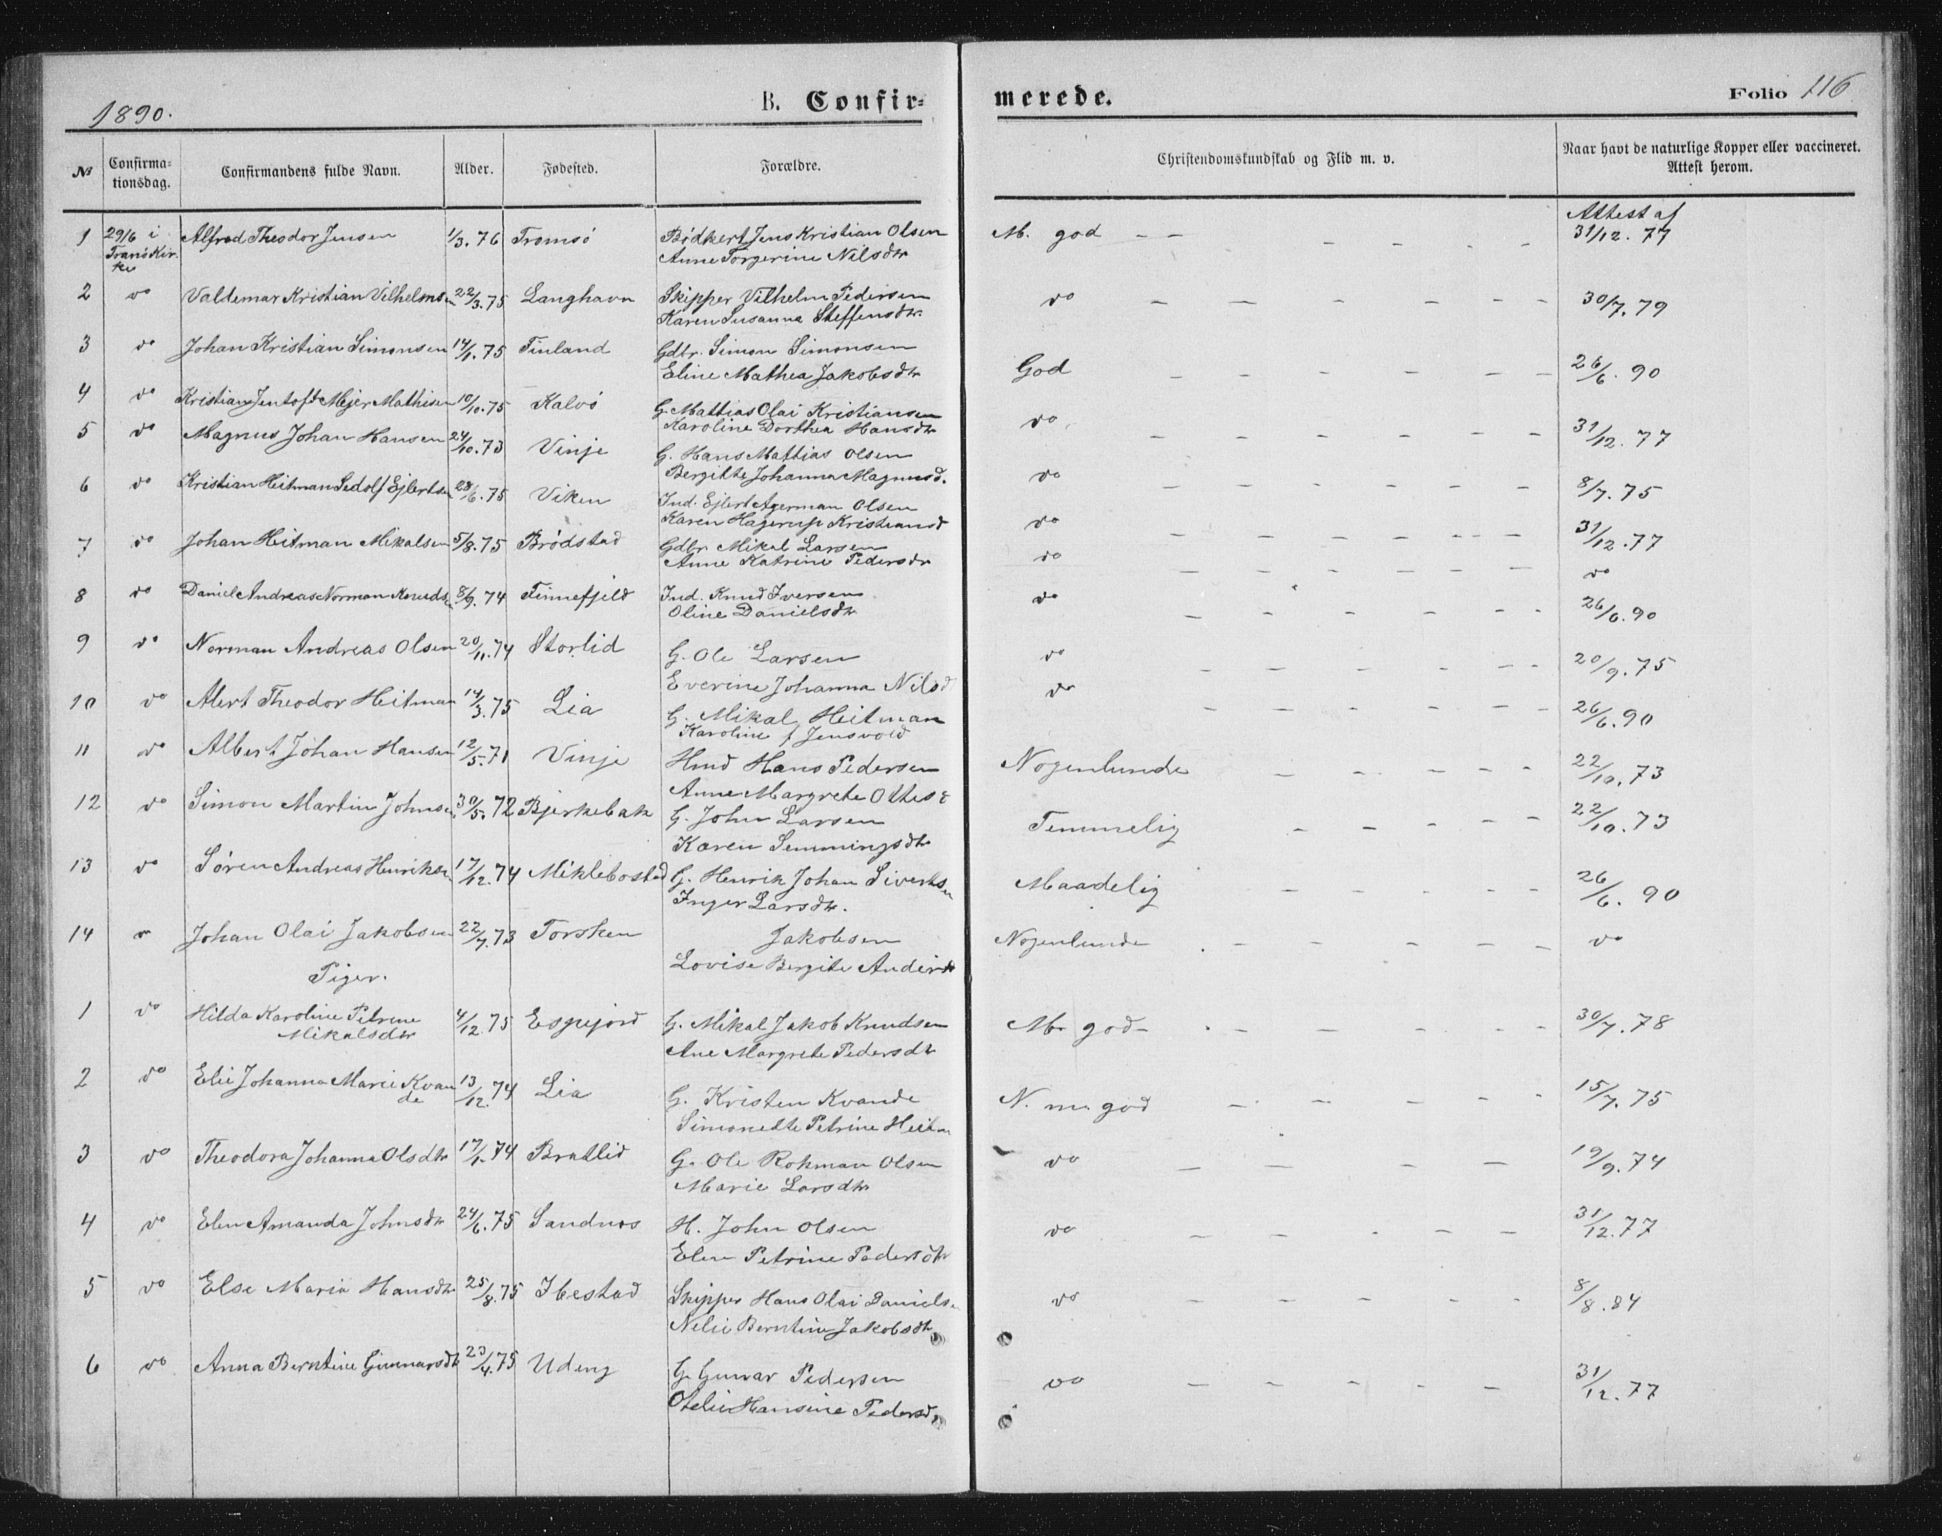 1890. B. Confirmerede. Folio 116
№ Confirmationsdag. Confirmandens fulde Navn. Alder. Fødested. Forældre. Christendomskundskab og Flid m. v. Naar havt de naturlige Kopper eller vaccineret. Attest herom.
1 29/6 i Tranö Kirke Alfred Theodor Jensen 1/3.76 Tromsö Bödkert Jens Kristian Olsen M. god - - - - - - Attest af 31/12.77
Anne Torgerine Nilsdtr
2 do Valdemar Kristian Vilhelmsen 22/3.75 Langhavn Skipper Vilhelm Pedersen do - - - - - - 30/7.79
Karen Susanna Steffensdtr.
3 do Johan Kristian Simonsen 14/1.75 Finland Gdbr. Simon Simonsen God - - - - - - 26/6.90
Eline Mathea Jakobsdtr
4 do Kristian Jentoft Mejer Mathisen 10/10.75 Kalvö G. Mattias Olai Kristiansen do - - - - - - 31/12.77
Karoline Dorthea Hansdtr
5 do Magnus Johan Hansen 24/10.73 Vinje G. Hans Mattias Olsen do - - - - - - 8/7.75
Bergitte Johanna Magnusd.
6 do Kristian Heitman Sedolf Ejlertsen 28/6.75 Viken Ind. Ejlert Agerman Olsen do - - - - - - 31/12.77
Karen Hagerup Kristiansd
7 do Johan Heitman Mikalsen 5/8.75 Brödstad Gdbr Mikal Larsen do - - - - - - do
Anne Katrine Pedersdtr
8 do Daniel Andreas Norman Knuds 8/9.74 Finnefjeld Ind. Knud Iversen do - - - - - - 26/6.90
Oline Danielsdtr
9 do Norman Andreas Olsen 20/11.74 Storlid G. Ole Larsen do - - - - - - 20/9.75
Everine Johanna Nilsd
10 do Alert Theodor Heitman 14/3.75 Lia G. Mikal Heitman do - - - - - - 26/6.90
Karoline f Jensvold
11 do Albert Johan Hansen 12/5.71 Vinje Hmd Hans Pedersen Nogenlunde - - - - - 22/10.73
Anne Margrete Ottesd
12 do Simon Martin Johns 30/5.72 Bjerkebak G. John Larsen Temmelig - - - - - 22/10.73
Karen Semmingsdtr
13 do Søren Andreas Henriks 17/12.74 Miklebostad G. Henrik Johan Sivertsen Maadelig - - - - - 26/6.90
Inger Larsdtr.
14 Johan Olai Jakobsen 22/7.73 Torsken Jakobsen Nogenlunde - - - - - do
Lovise Bergite Andersdtr
Piger.
1 do Hilda Karoline Petrine Mikalsdtr 4/12.75 Espejord G. Mikal Jakob Knudsen M. god - - - - - - 30/7.78
Ane Margrete Pedersdtr
2 do Elie Johanna Marie Kvande 13/12.74 Lia G. Kristen Kvande N. m. god - - - - - 15/7.75
Simonette Petrine Heitm
3 do Theodora Johanna Olsdtr 17/1.74 Bratlid G. Ole Rohman Olsen do - - - - - 19/9.74
Marie Larsdtr
4 do Elen Amanda Johnsdtr 24/6.75 Sandnæs H. John Olsen do - - - - - - 31/12.77
Elen Petrine Pedersdtr
5 do Else Maria Hansdtr 25/8.75 Ibestad Skipper Hans Olai Daniels do - - - - - 8/8.84
Nelie Berntine Jakobsdtr
6 do Anna Berntine Gunnarsdtr 23/4.75 Udeng G. Gunnar Pedersen do - - - - - 31/12.77
Otelie Hansine Pedersd.